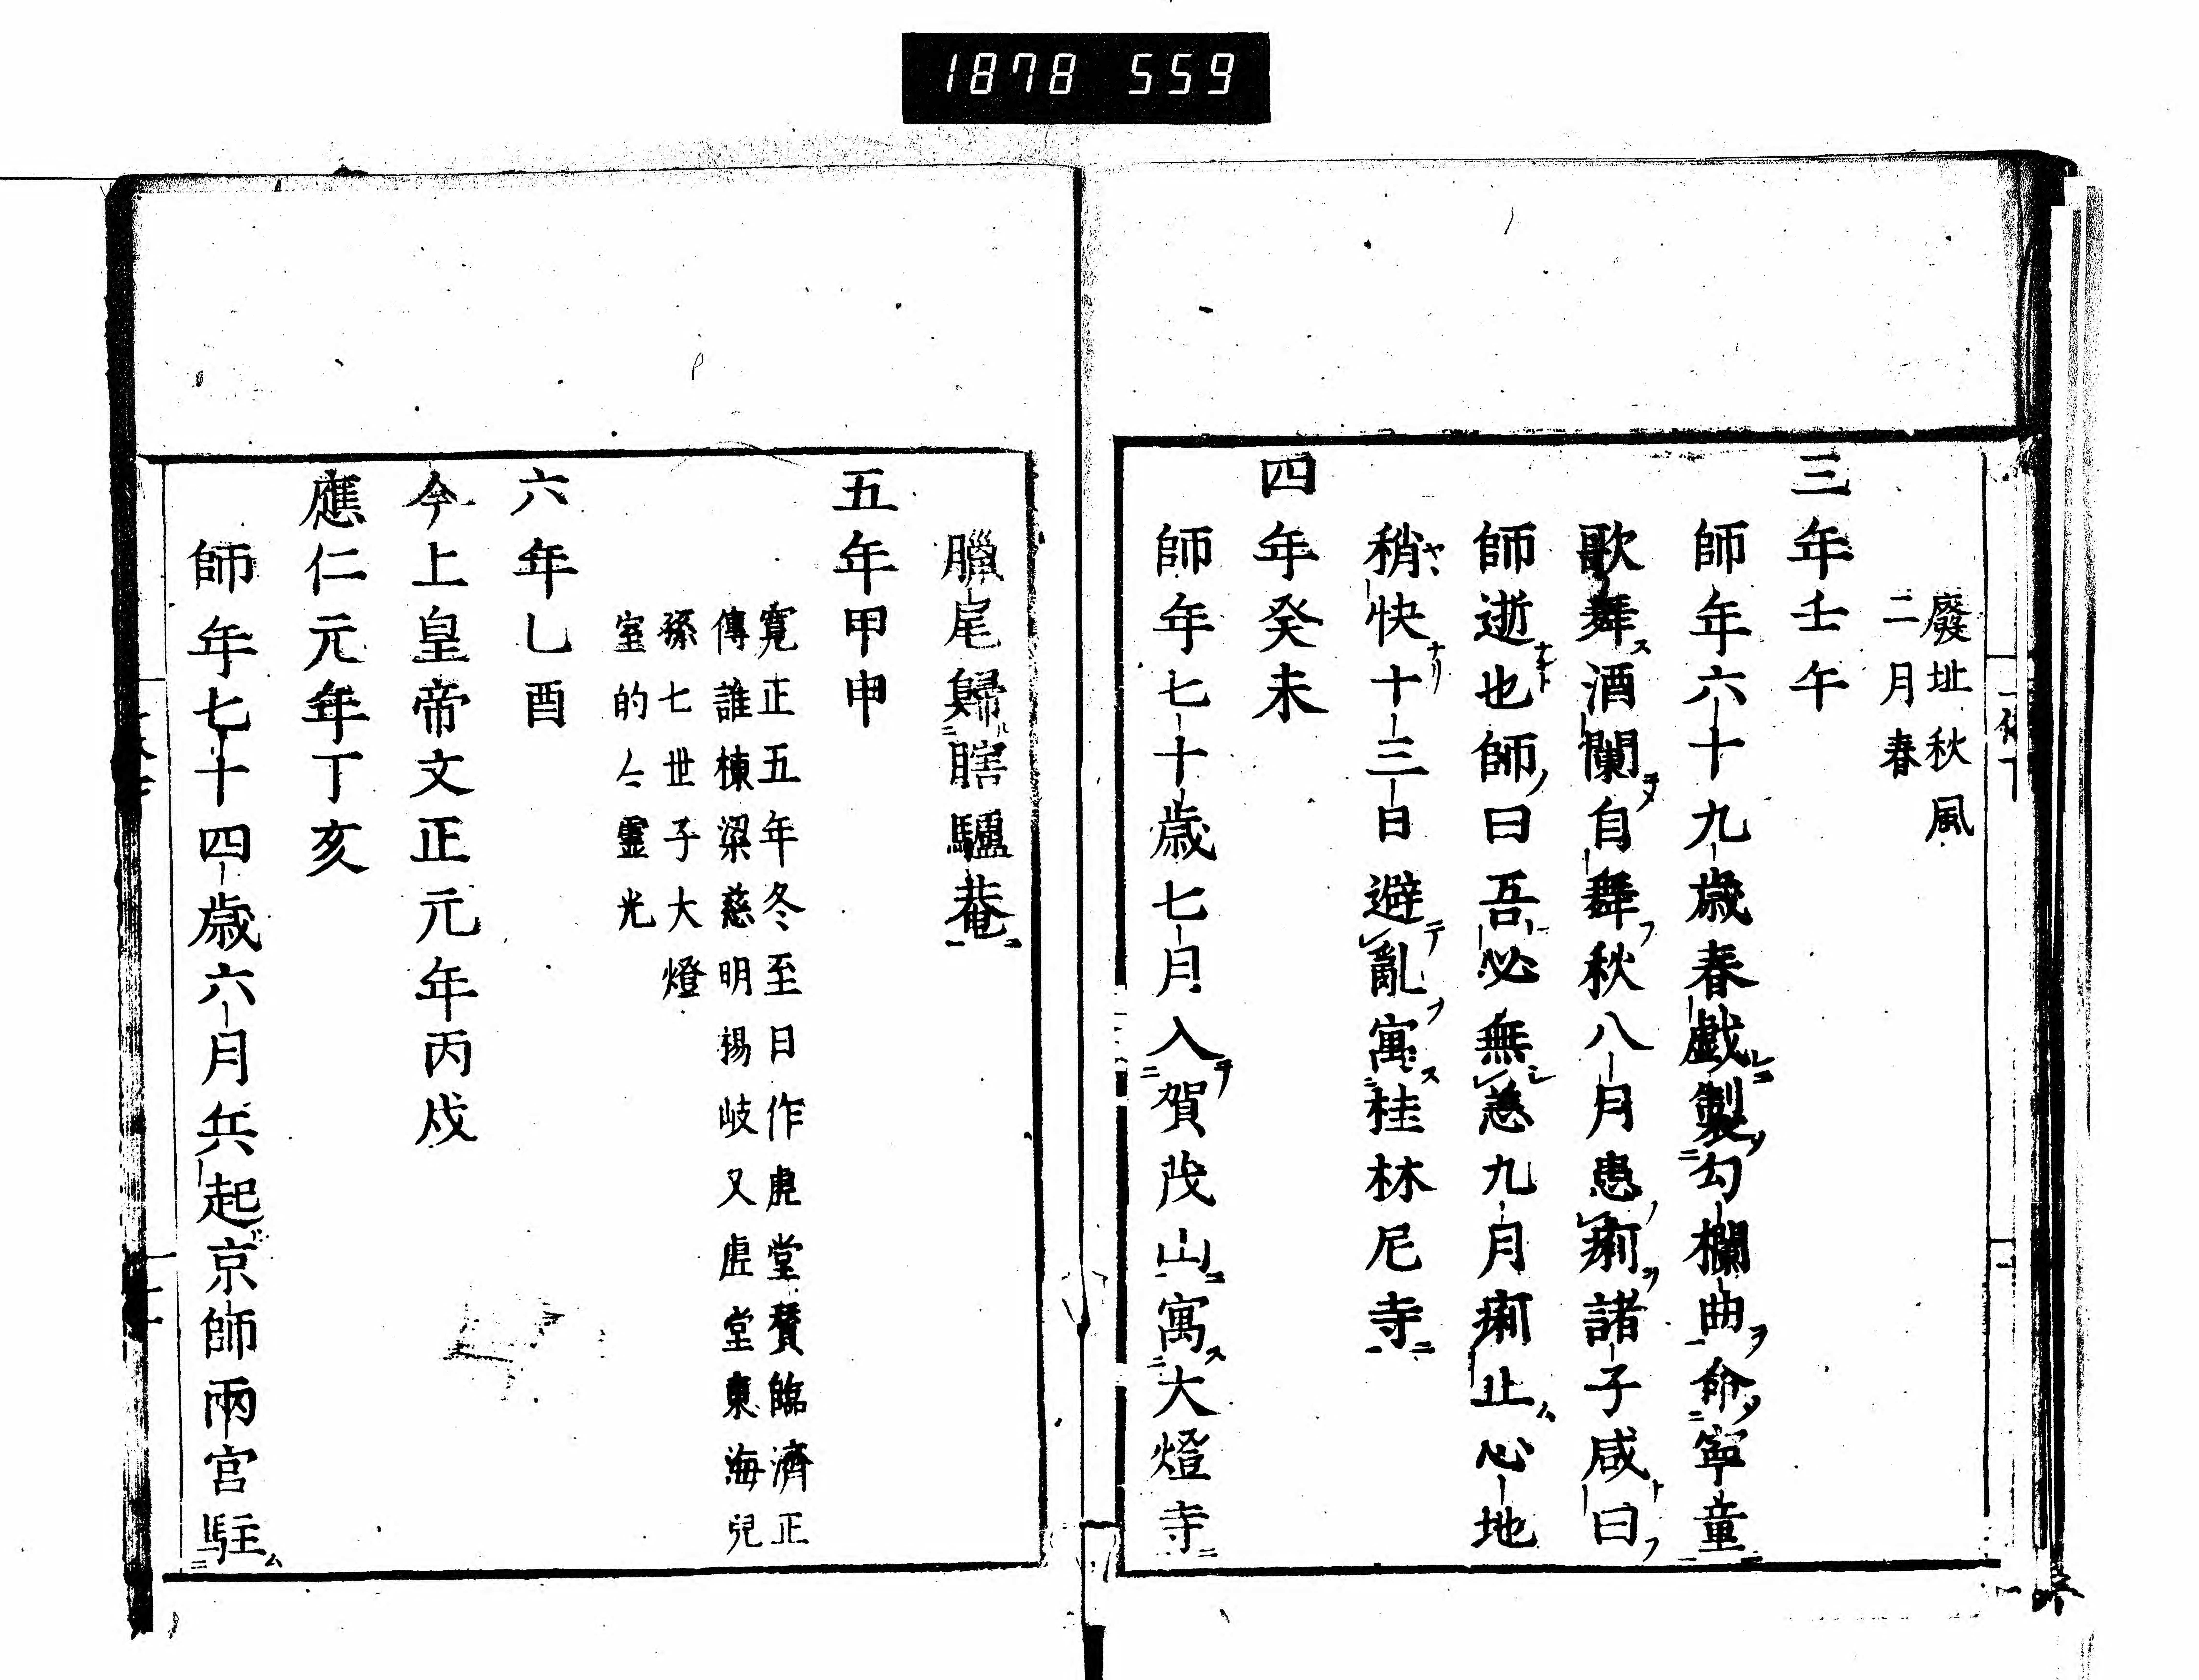 1878 559
廢址秋風
二月春
三年壬午
師年六十九歳春戯製勾欄曲命寧童
歌舞酒闌自舞秋八月患痢諸子咸曰
師逝也師曰吾必無恙九月痢止心地
稍快十三日避亂寓桂林尼寺
四年癸未
師年七十歳七月入賀茂山寓大燈寺
臘尾歸瞎驢菴
五年甲申
寛正五年冬至日作虚堂賛臨濟正
傳誰棟梁慈明楊岐又虚堂東海兒
孫七世子大燈
室的々靈光
六年乙酉
今上皇帝文正元年丙戌
應仁元年丁亥
師年七十四歳六月兵起京師兩宮駐